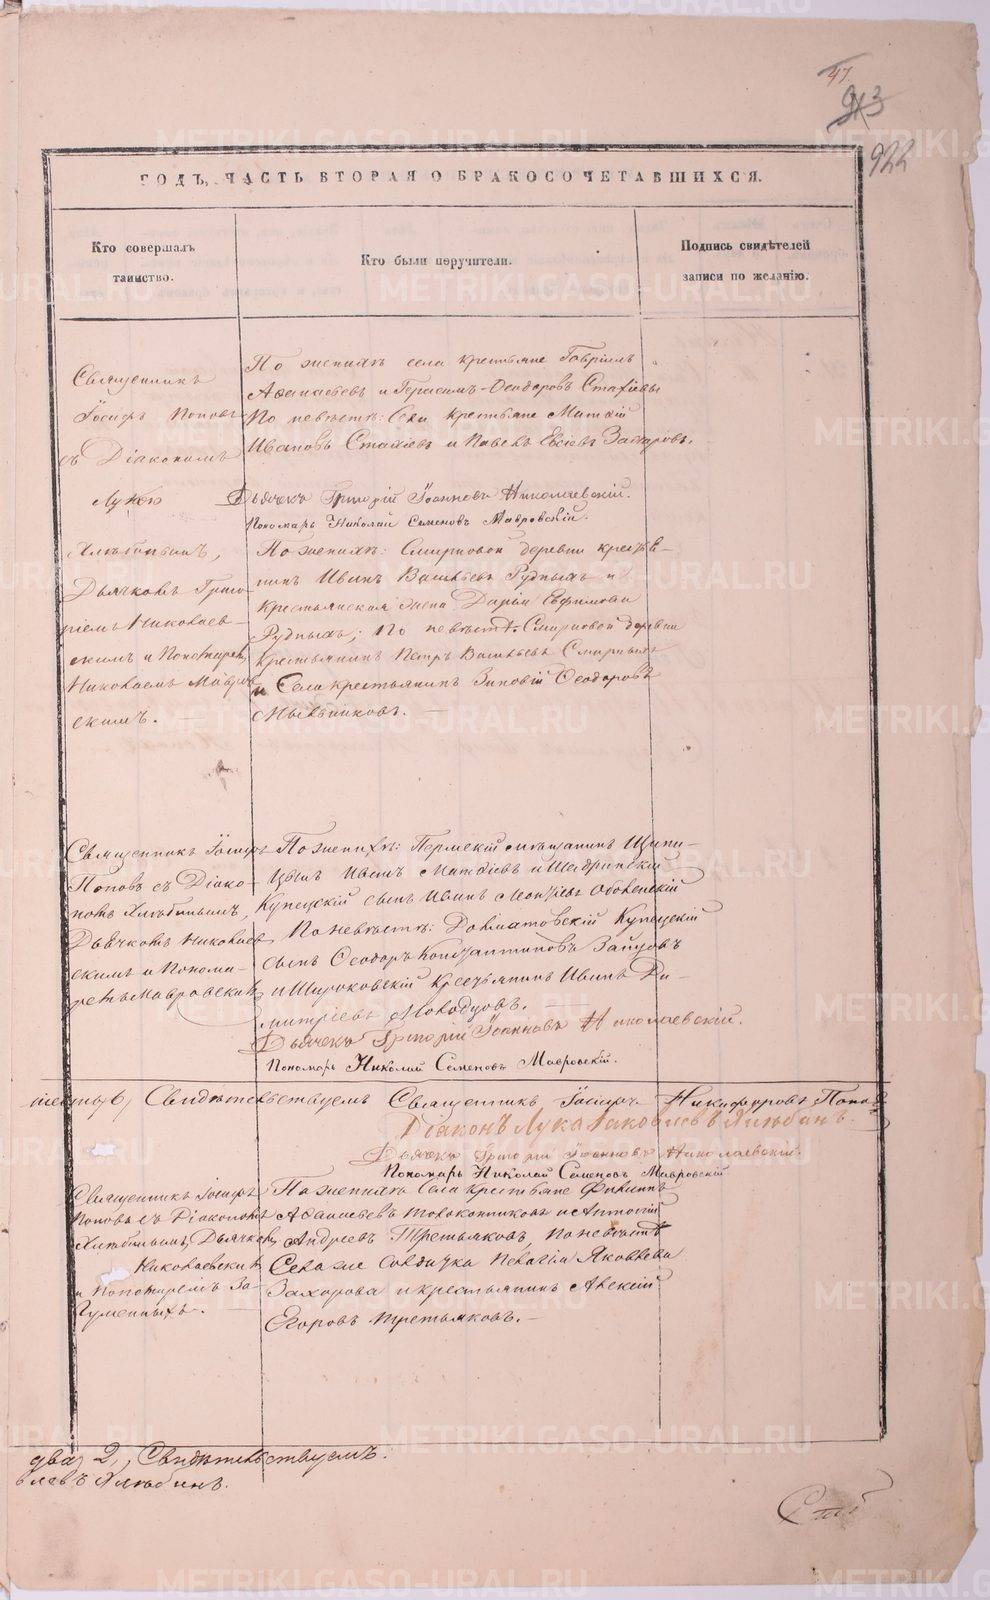 47
913
922
ГОДЪ, ЧАСТЬ ВТОРАЯ О БРАКОСОЧЕТАВШИХСЯ.
Кто совершалъ
таинство.
Кто были поручители.
Подпись свидѣтелей
записи по желанію.
Священникъ
Іосифъ Поповъ
съ Діакономъ
Лукою
Хлѣбинымъ,
Дьячкомъ Григо-
ріемъ Николаев-
скимъ и Пономаремъ
Николаемъ Мавров-
скимъ. —
По женихѣ села крестьяне Гавріилъ
Аѳанасьевъ и Герасимъ Ѳеодоровъ Стахіевы
По невѣстѣ: Села крестьяне Матвій
Ивановъ Стахіевъ и Павелъ Евсіевъ Захаровъ.
Дьячекъ Григорій Іоанновъ Николаевскій.
Пономарь Николай Семеновъ Мавровскій.
По женихѣ: Смирновой деревни крестья-
нинъ Иванъ Васильевъ Рудныхъ и
Крестьянская жена Дарья Ефимова
Рудныхъ; По невѣстѣ Смирновой деревни
крестьянинъ Петръ Васильевъ Смирныхъ
и Села крестьянинъ Зиновій Ѳеодоровъ
Мыльниковъ. —
Священникъ Іосифъ
Поповъ съ Діако-
номъ Хлѣбинымъ,
Дьячкомъ Николаев
скимъ и Понома-
ремъ Мавровскимъ
По женихѣ: Пермскій мѣщанинъ Щипи-
цынъ Иванъ Матвіевъ и Шадринскій
Купецкій сынъ Иванъ Леонтіевъ
По невѣстѣ: Долматовскій Купецкій
сынъ Ѳеодоръ Константиновъ Зайцовъ
и Широковскій Крестьянинъ Иванъ Ди-
митріевъ Молодцовъ. —
Дьячекъ Григорій Іоанновъ Николаевскій.
Пономарь Николай Семеновъ Мавровскій.
6, Свидѣтельствуемъ Священникъ Іосифъ Никифоровъ Поповъ
Діаконъ Лука Іаковлевъ Хлѣбинъ.
Дьячекъ Григорій Іоанновъ Николаевскій.
Пономарь Николай Семеновъ Мавровскій
Священникъ Іосифъ
Поповъ съ Діакономъ
Хлѣбинымъ, Дьячкомъ
Николаевскимъ
и Пономаремъ За-
гуменныхъ. —
По женихѣ Села Крестьяне Филиппъ
Аѳанасьевъ Толоконниковъ и Антоній
Андреевъ Третьяковъ, По невѣстѣ
Села же солдатка Пелагія Яковлева
Захарова и крестьянинъ Алексій
Егоровъ Третьяковъ. —
два 2, Свидѣтельствуемъ:
влевъ Хлѣбинъ.
METRIKI.GASO-URAL.RU